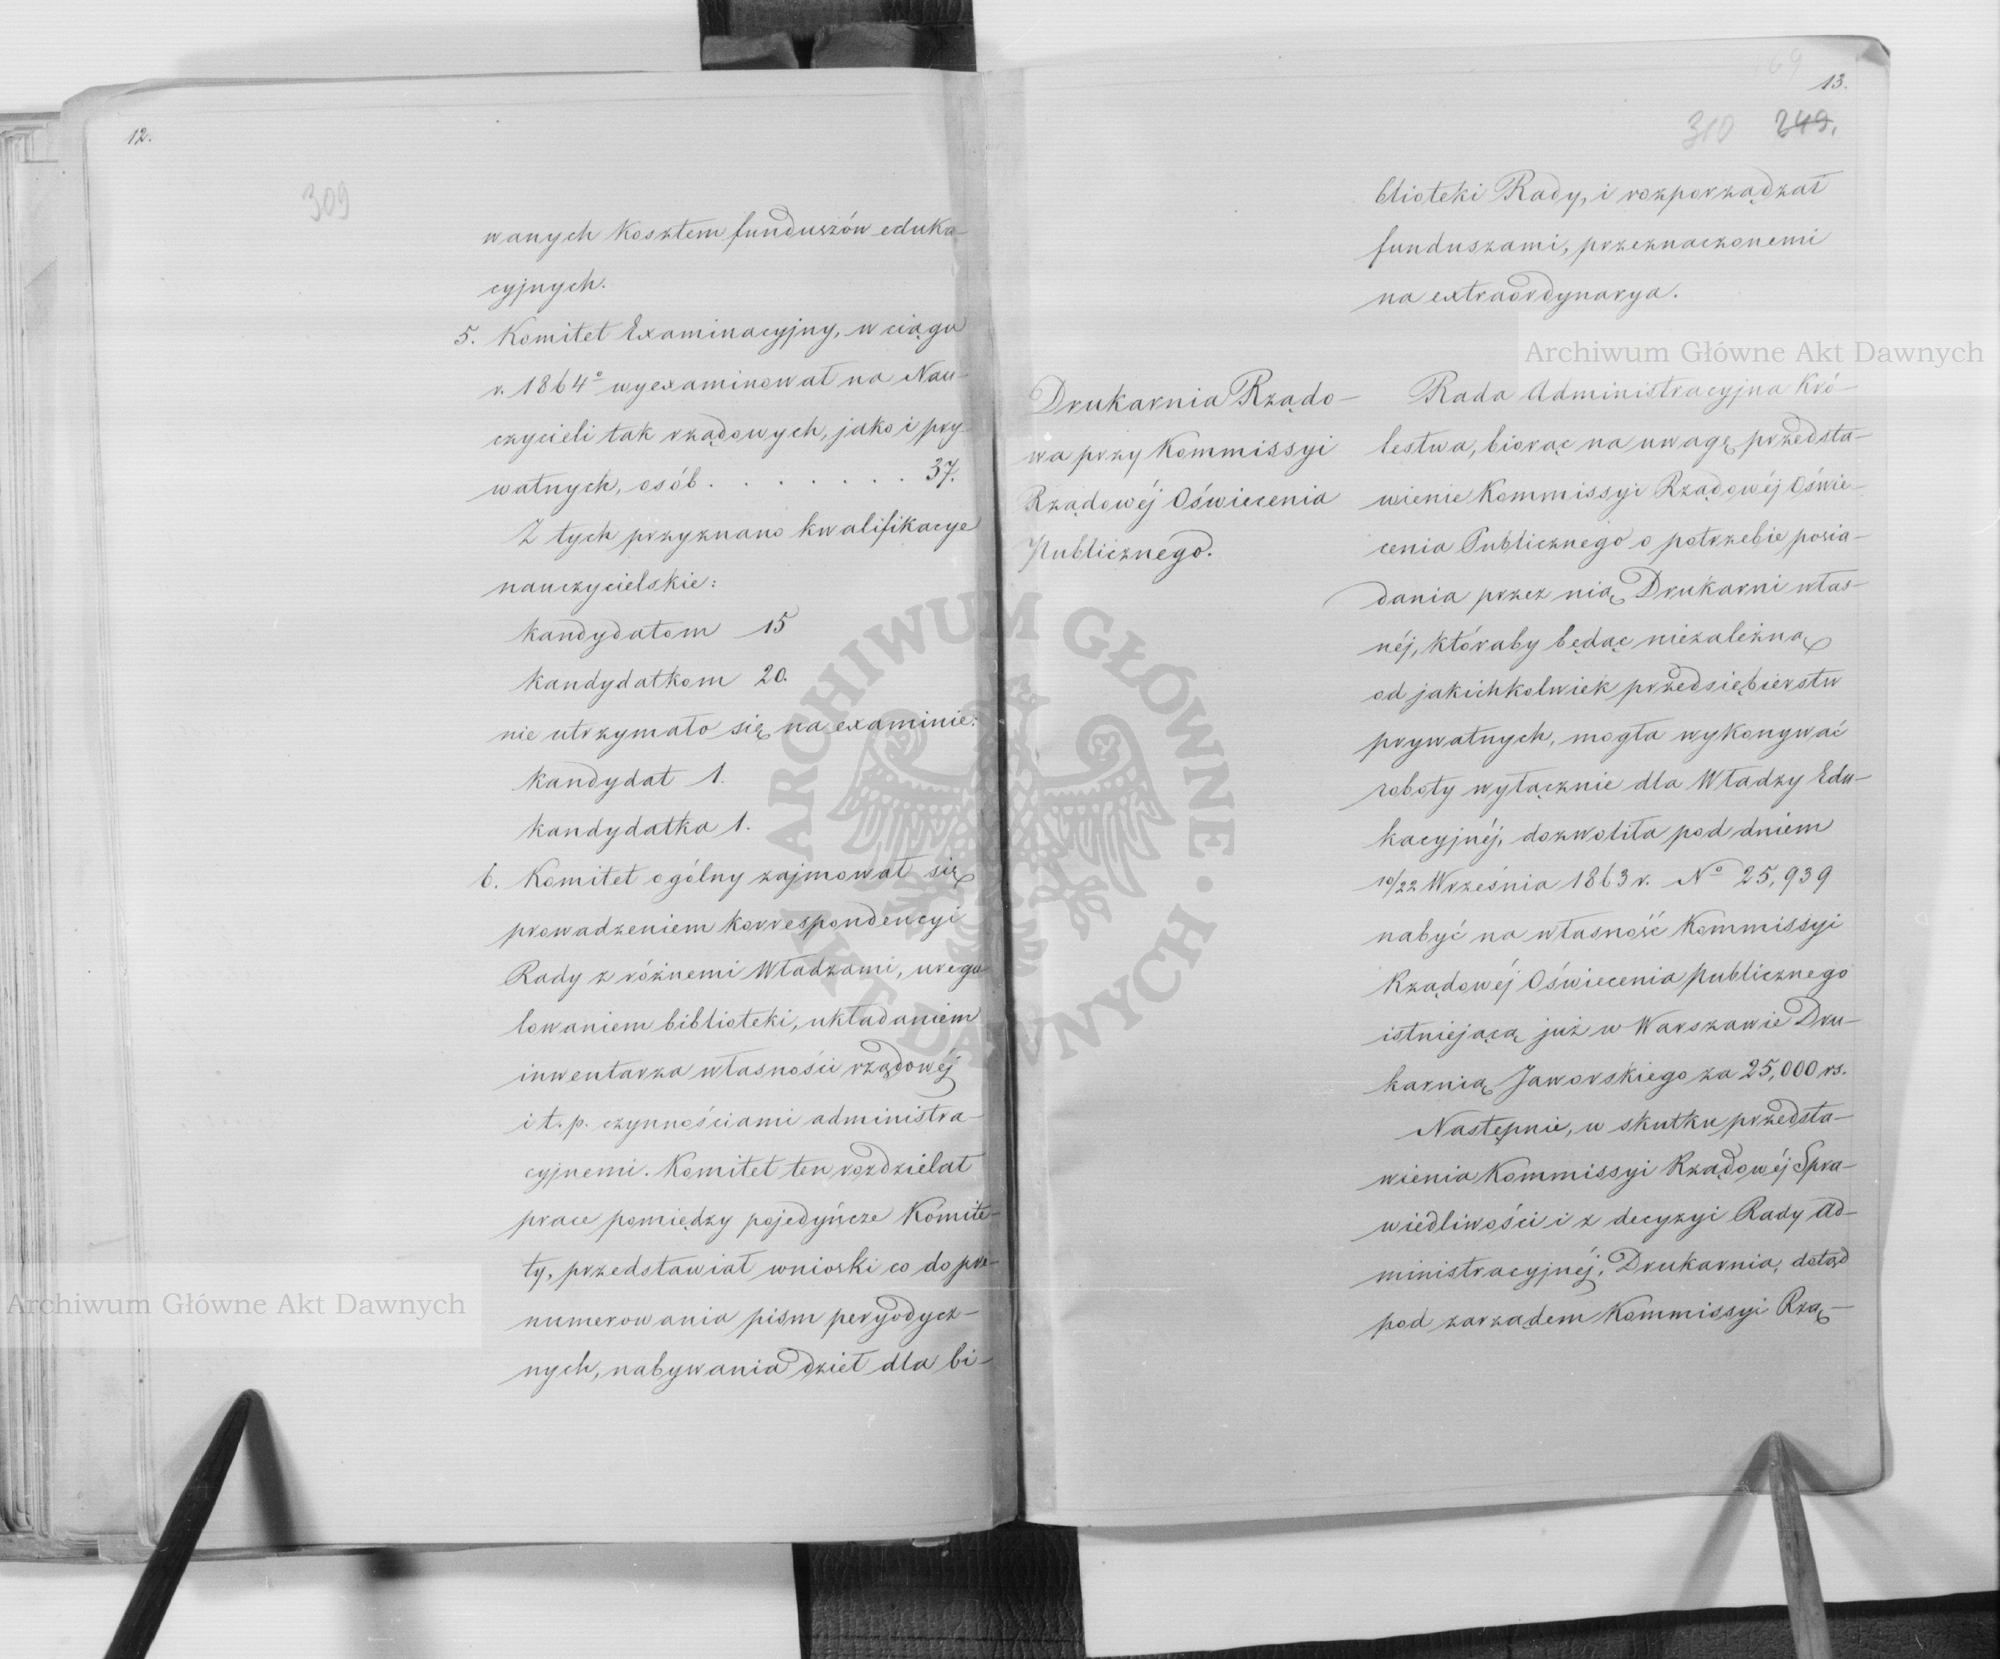 12.
309
wanych kosztem funduszów eduka-
cyjnych.
5. Komitet Examinacyjny, w ciągu
r. 1864° wyexaminował na Nau-
czycieli tak rządowych, jako i pry-
watnych, osób . . . . . . . . 37.
Z tych przyznano kwalifikacye
nauczycielskie:
kandydatom 15
kandydatkom 20.
nie utrzymało się na examinie:
kandydat 1.
kandydatka 1.
6. Komitet ogólny zajmował się
prowadzeniem korrespondencyi
Rady z różnemi Władzami, uregu-
lowaniem biblioteki, układaniem
inwentarza własności rządowéj
i t. p. czynnościami administra-
cyjnemi. Komitet ten rozdzielał
prace pomiędzy pojedyńcze Komite-
ty, przedstawiał wnioski co do pre-
numerowania pism peryodycz-
nych, nabywania dzieł dla bi-
Archiwum Główne Akt Dawnych
169
13.
310 249.
blioteki Rady, i rozporządzał
funduszami, przeznaczonemi
na extraordynarya.
Archiwum Główne Akt Dawnych
Drukarnia Rządo-
wa przy Kommissyi
Rządowéj Oświecenia
Publicznego.
Rada Administracyjna Kró-
lestwa, biorąc na uwagę przedsta-
wienie Kommissyi Rządowéj Oświe-
cenia Publicznego o potrzebie posia-
dania przez nią Drukarni włas-
néj, któraby będąc niezależną
od jakichkolwiek przedsiębierstw
prywatnych, mogła wykonywać
roboty wyłącznie dla Władzy Edu-
kacyjnéj, dozwoliła pod dniem
10/22 Września 1863 r. No 25,939
nabyć na własność Kommissyi
Rządowéj Oświecenia Publicznego
istniejącą już w Warszawie Dru-
karnią Jaworskiego za 25,000 rs.
Następnie, w skutku przedsta-
wienia Kommissyi Rządowéj Spra-
wiedliwości i z decyzyi Rady Ad-
ministracyjnéj, Drukarnia, dotąd
pod zarządem Kommissyi Rzą-
ARCHIWUM GŁÓWNE AKT DAWNYCH